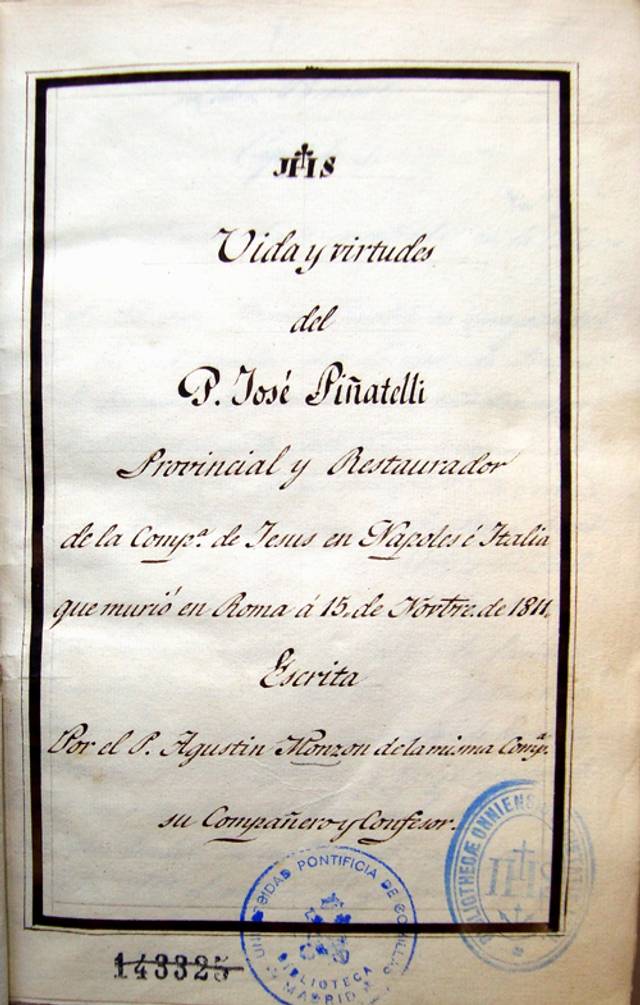 JHS
Vida y virtudes
del
P. José Piñatelli
Provincial y Restaurador
de la Comp.ª de Jesus en Napoles é Italia
que murió en Roma á 15. de Novbre. de 1811.
Escrita
Por el P. Agustin Monzon de la misma Comp.ª
su Compañero y Confesor.
UNIVERSIDAD PONTIFICIA DE COMILLAS
BIBLIOTECA
MADRID
BIBLIOTHECÆ ONNIENS
JHS
143325